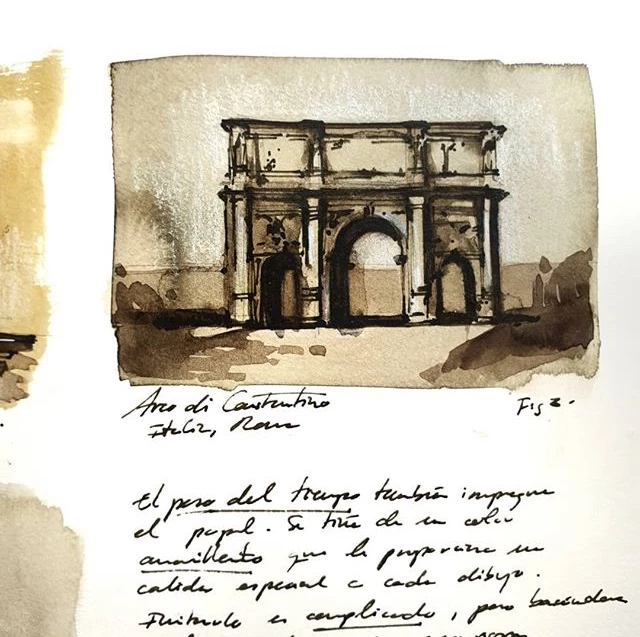 Arco di Constantino
Italia, Roma
Fig 3.
El peso del tiempo también impregna
el papel. Se tiñe de un color
amarillento que le proporciona un
calidez especial a cada dibujo.
Imitarlo es complicado, pero